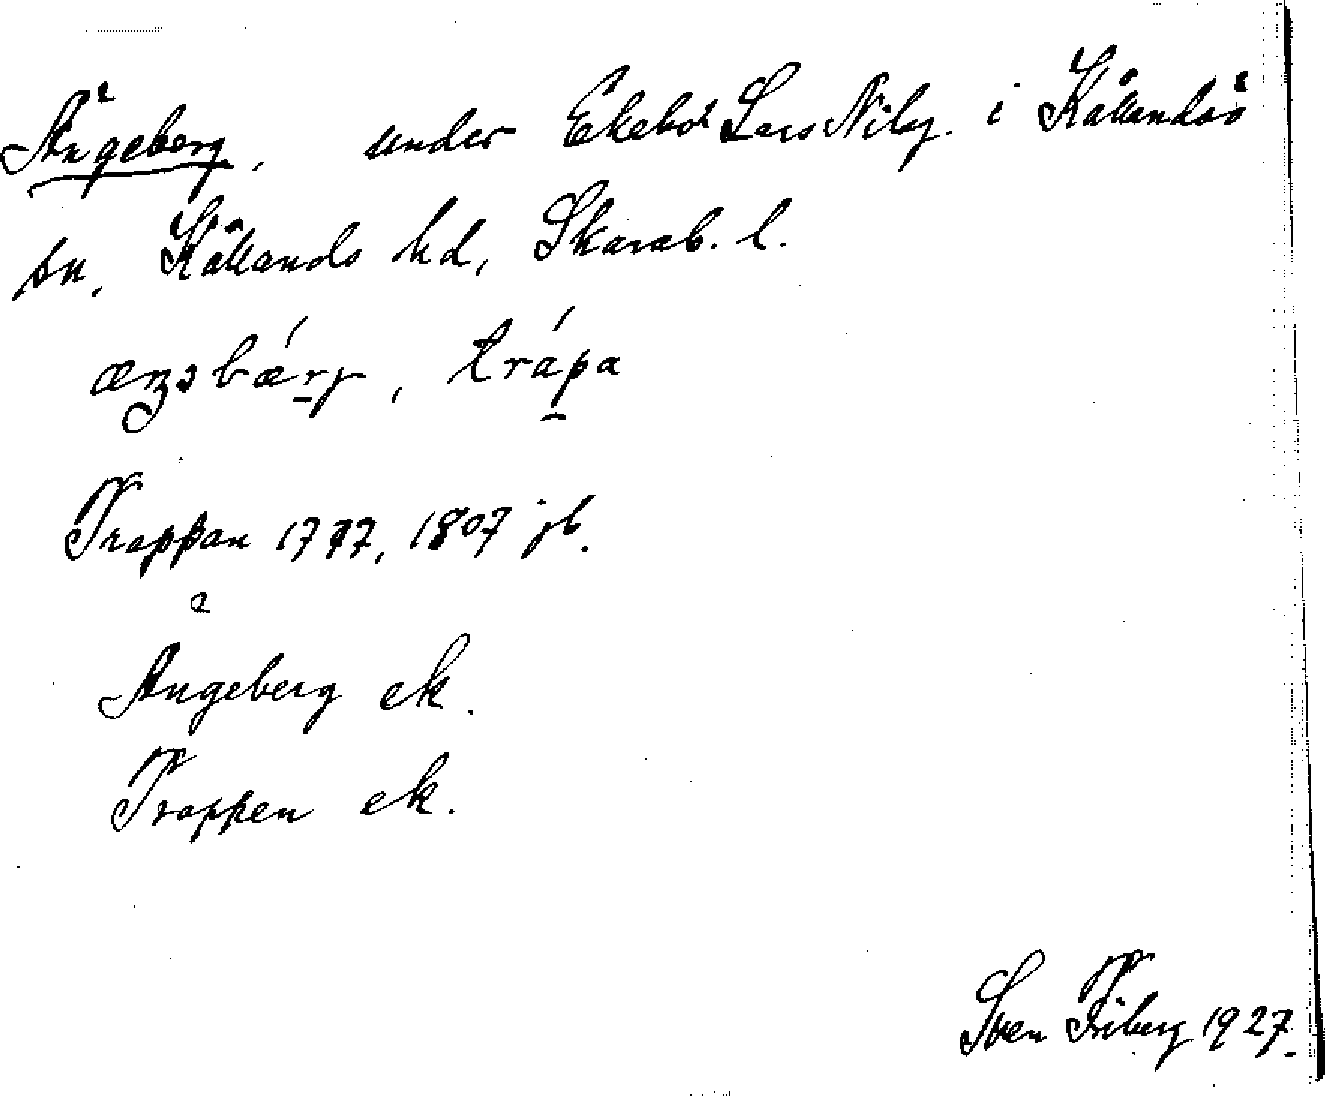 Ängeberg, under Ekebol Lars Nilsg. i Kållandsö
sn, Kållands hd, Skarab. l.
æŋəbærj, trápa
Trappan 1777, 1807 jb.
Ängeberg ek.
Trappen ek.
Sven Friberg 1927.